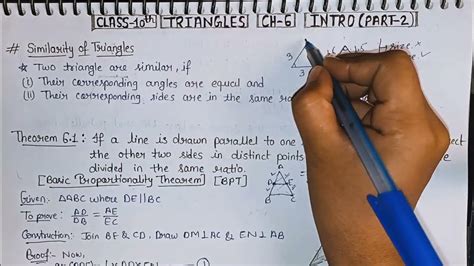 CLASS-10th TRIANGLES CH-6 INTRO (PART-2)
# Similarity of Triangles
* Two triangle are similar, if
(i) Their corresponding angles are equal and
(ii) Their corresponding sides are in the same
3
3
Theorem 6.1: If a line is drawn parallel to one
the other two sides in distinct points
divided in the same ratio.
[Basic Proportionality Theorem] [BPT]
Given: ΔABC where DE||BC
To prove: AD/DB = AE/EC
Construction: Join BE & CD, Draw DM⊥AC & EN⊥AB
Proof: Now,